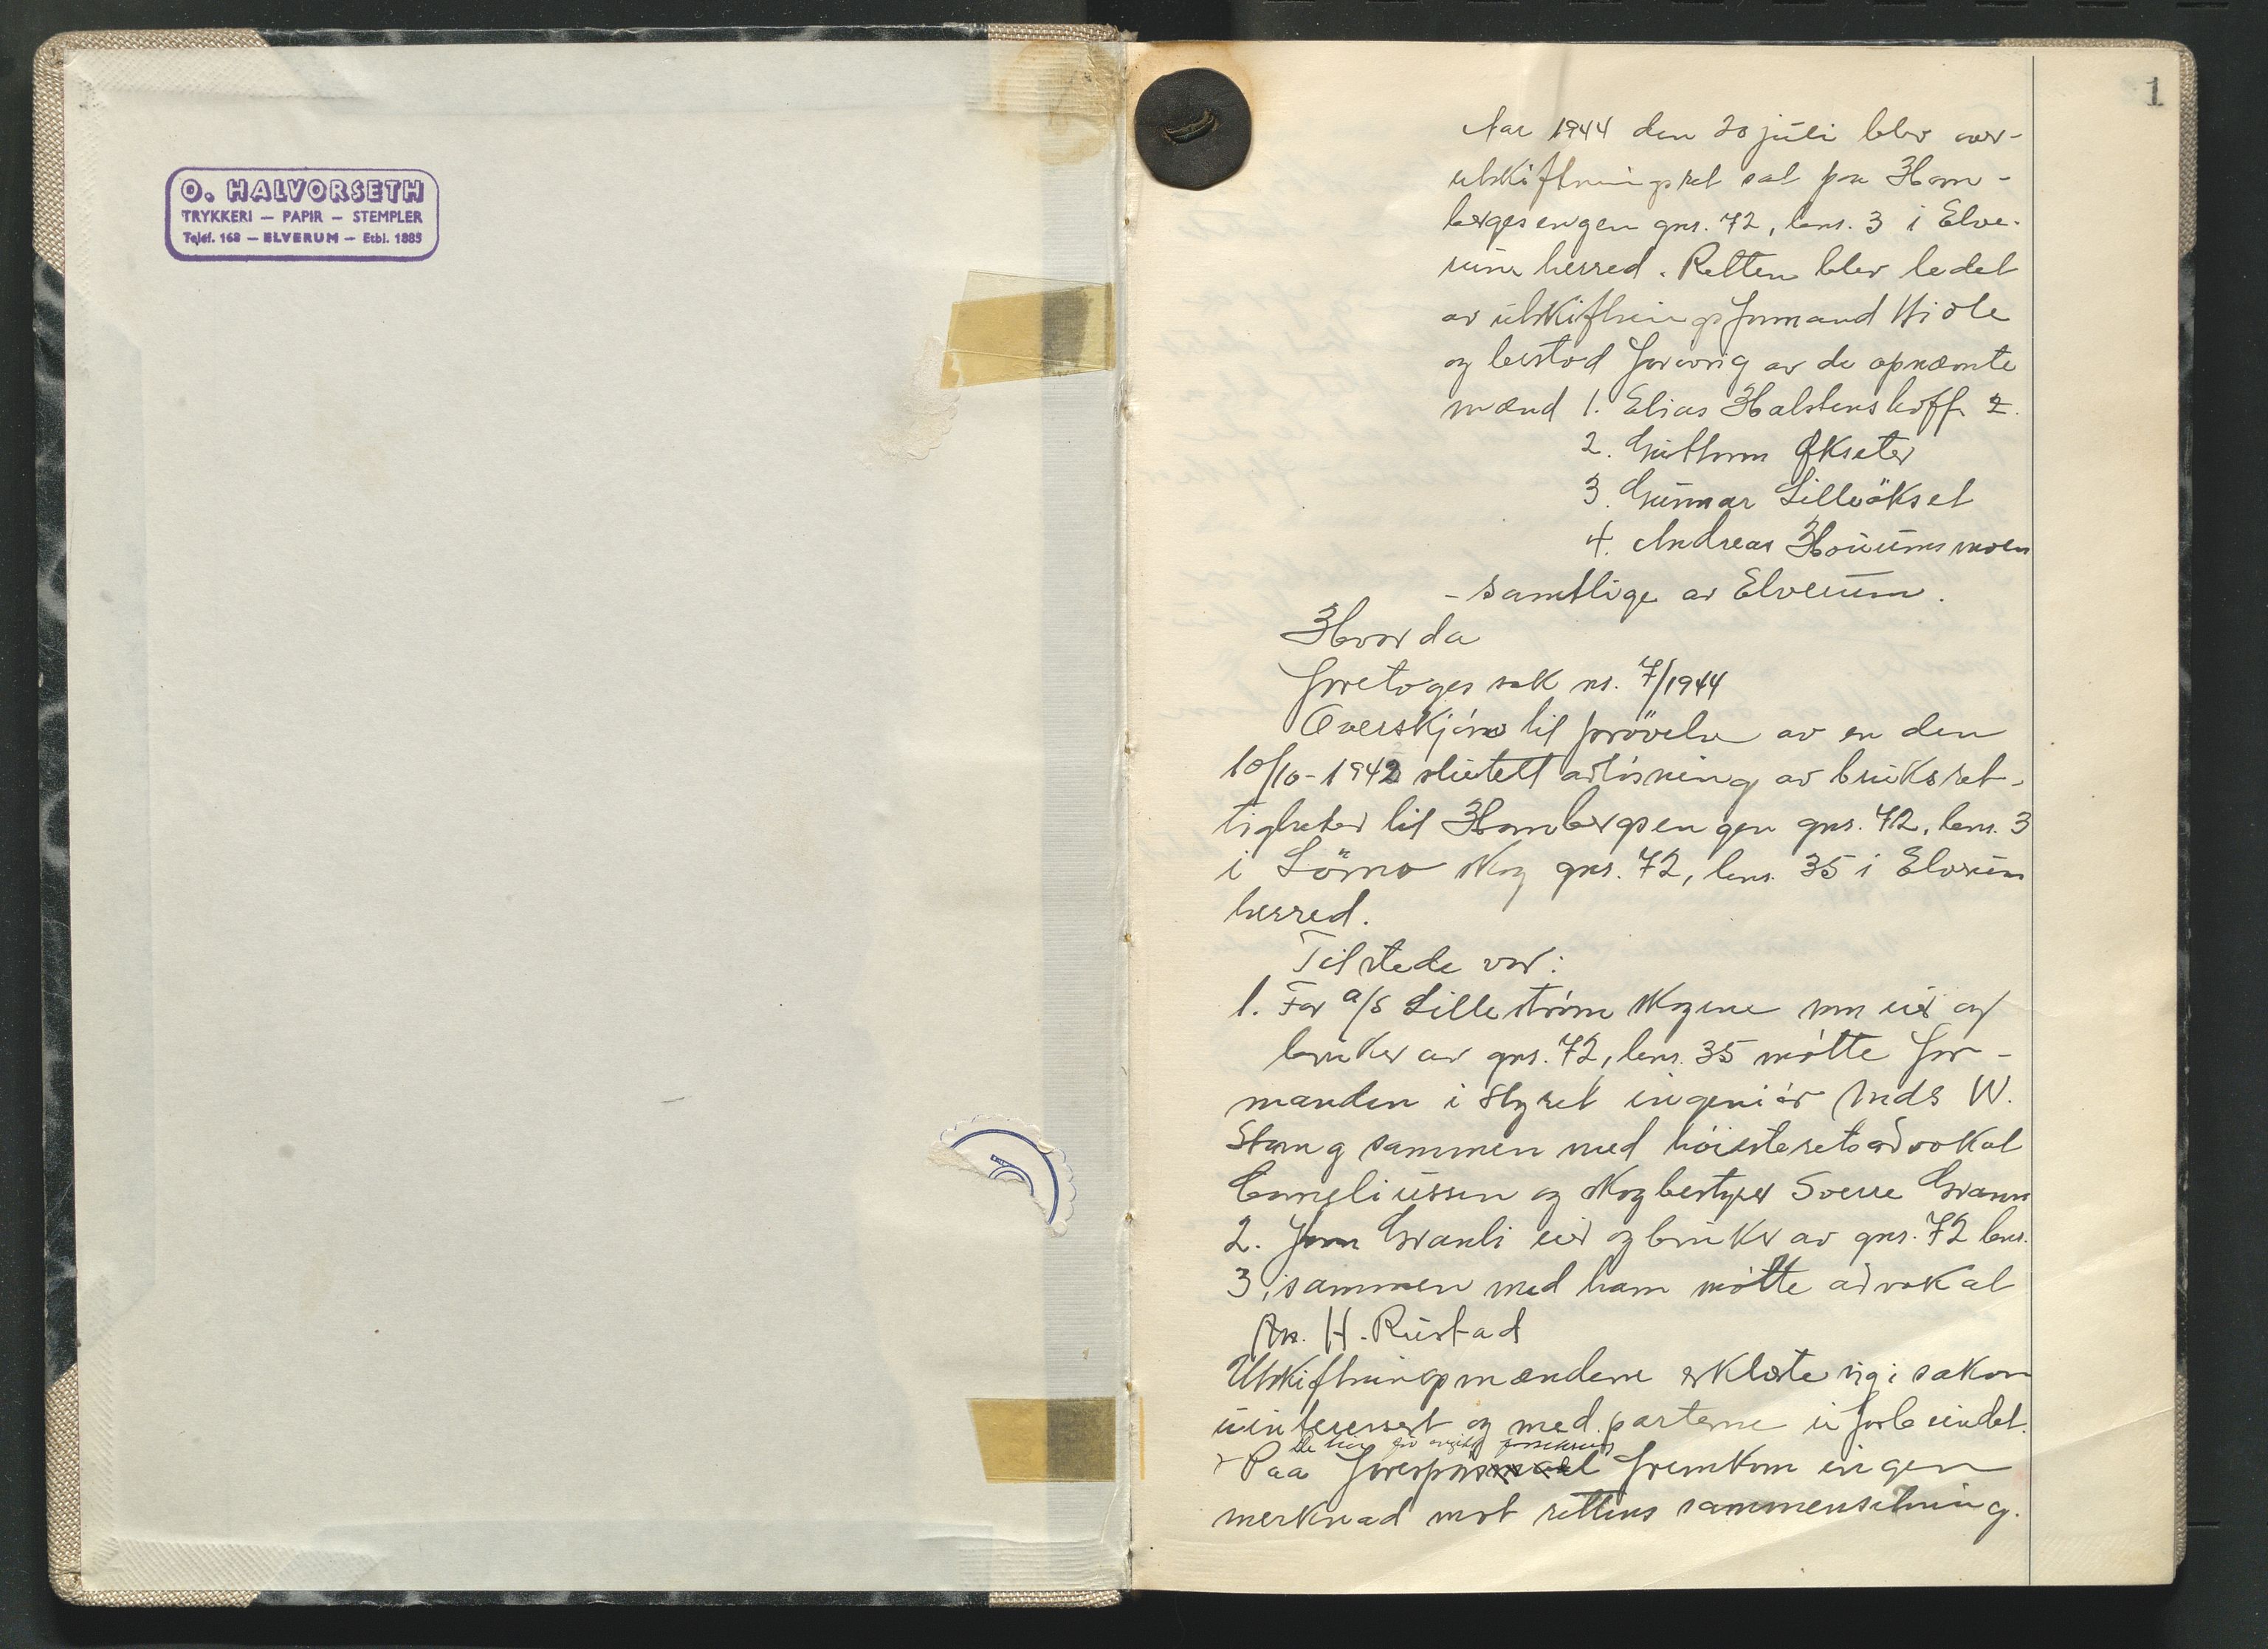 O. HALVORSETH
TRYKKERI — PAPIR — STEMPLER
Telef. 168 — ELVERUM — Etbl. 1885
1
Aar 1944 den 20 juli blev over-
utskiftningsret sat paa Ham-
bergsengen gnr. 72, bnr. 3 i Elve-
rum herred. Retten blev ledet
av utskiftningsformand Hiole
og bestod forøvrig av de opnæmte
mænd 1. Elias Halstenshoff 2.
2. Guttorm Økseter
3. Gunnar Lilleökset
4. Andreas Hornmsmoen
- samtlige av Elverum.
Hvorda
foretoges sak nr. 7/1944
Overskjøn til prövelse av en den
10/10-1942 sluttett avløsning av bruksret-
tigheter til Hambergsengen gnr. 72, bnr. 3
i Sömo skog gnr. 72, bnr. 35 i Elverum
herred.
Tilstede var:
1. For a/s Lillestrøm skogene som eier og
bruker av gnr. 72, bnr. 35 møtte for-
manden i styret ingeniør Mads W.
Stang sammen med høiesteretsadvokat
Corneliussen og skogbestyrer Sverre Grann
2. Jon Granli eier og bruker av gnr. 72 bnr.
3, sammen med ham møtte advokat
An. H. Rustad
Utskiftningsmændene erklærte sig i saken
uinteressert og med parterne uforbundet.
De har før avgitt forsikring
Paa forespørsel fremkom ingen
merknad mot rettens sammensetning.